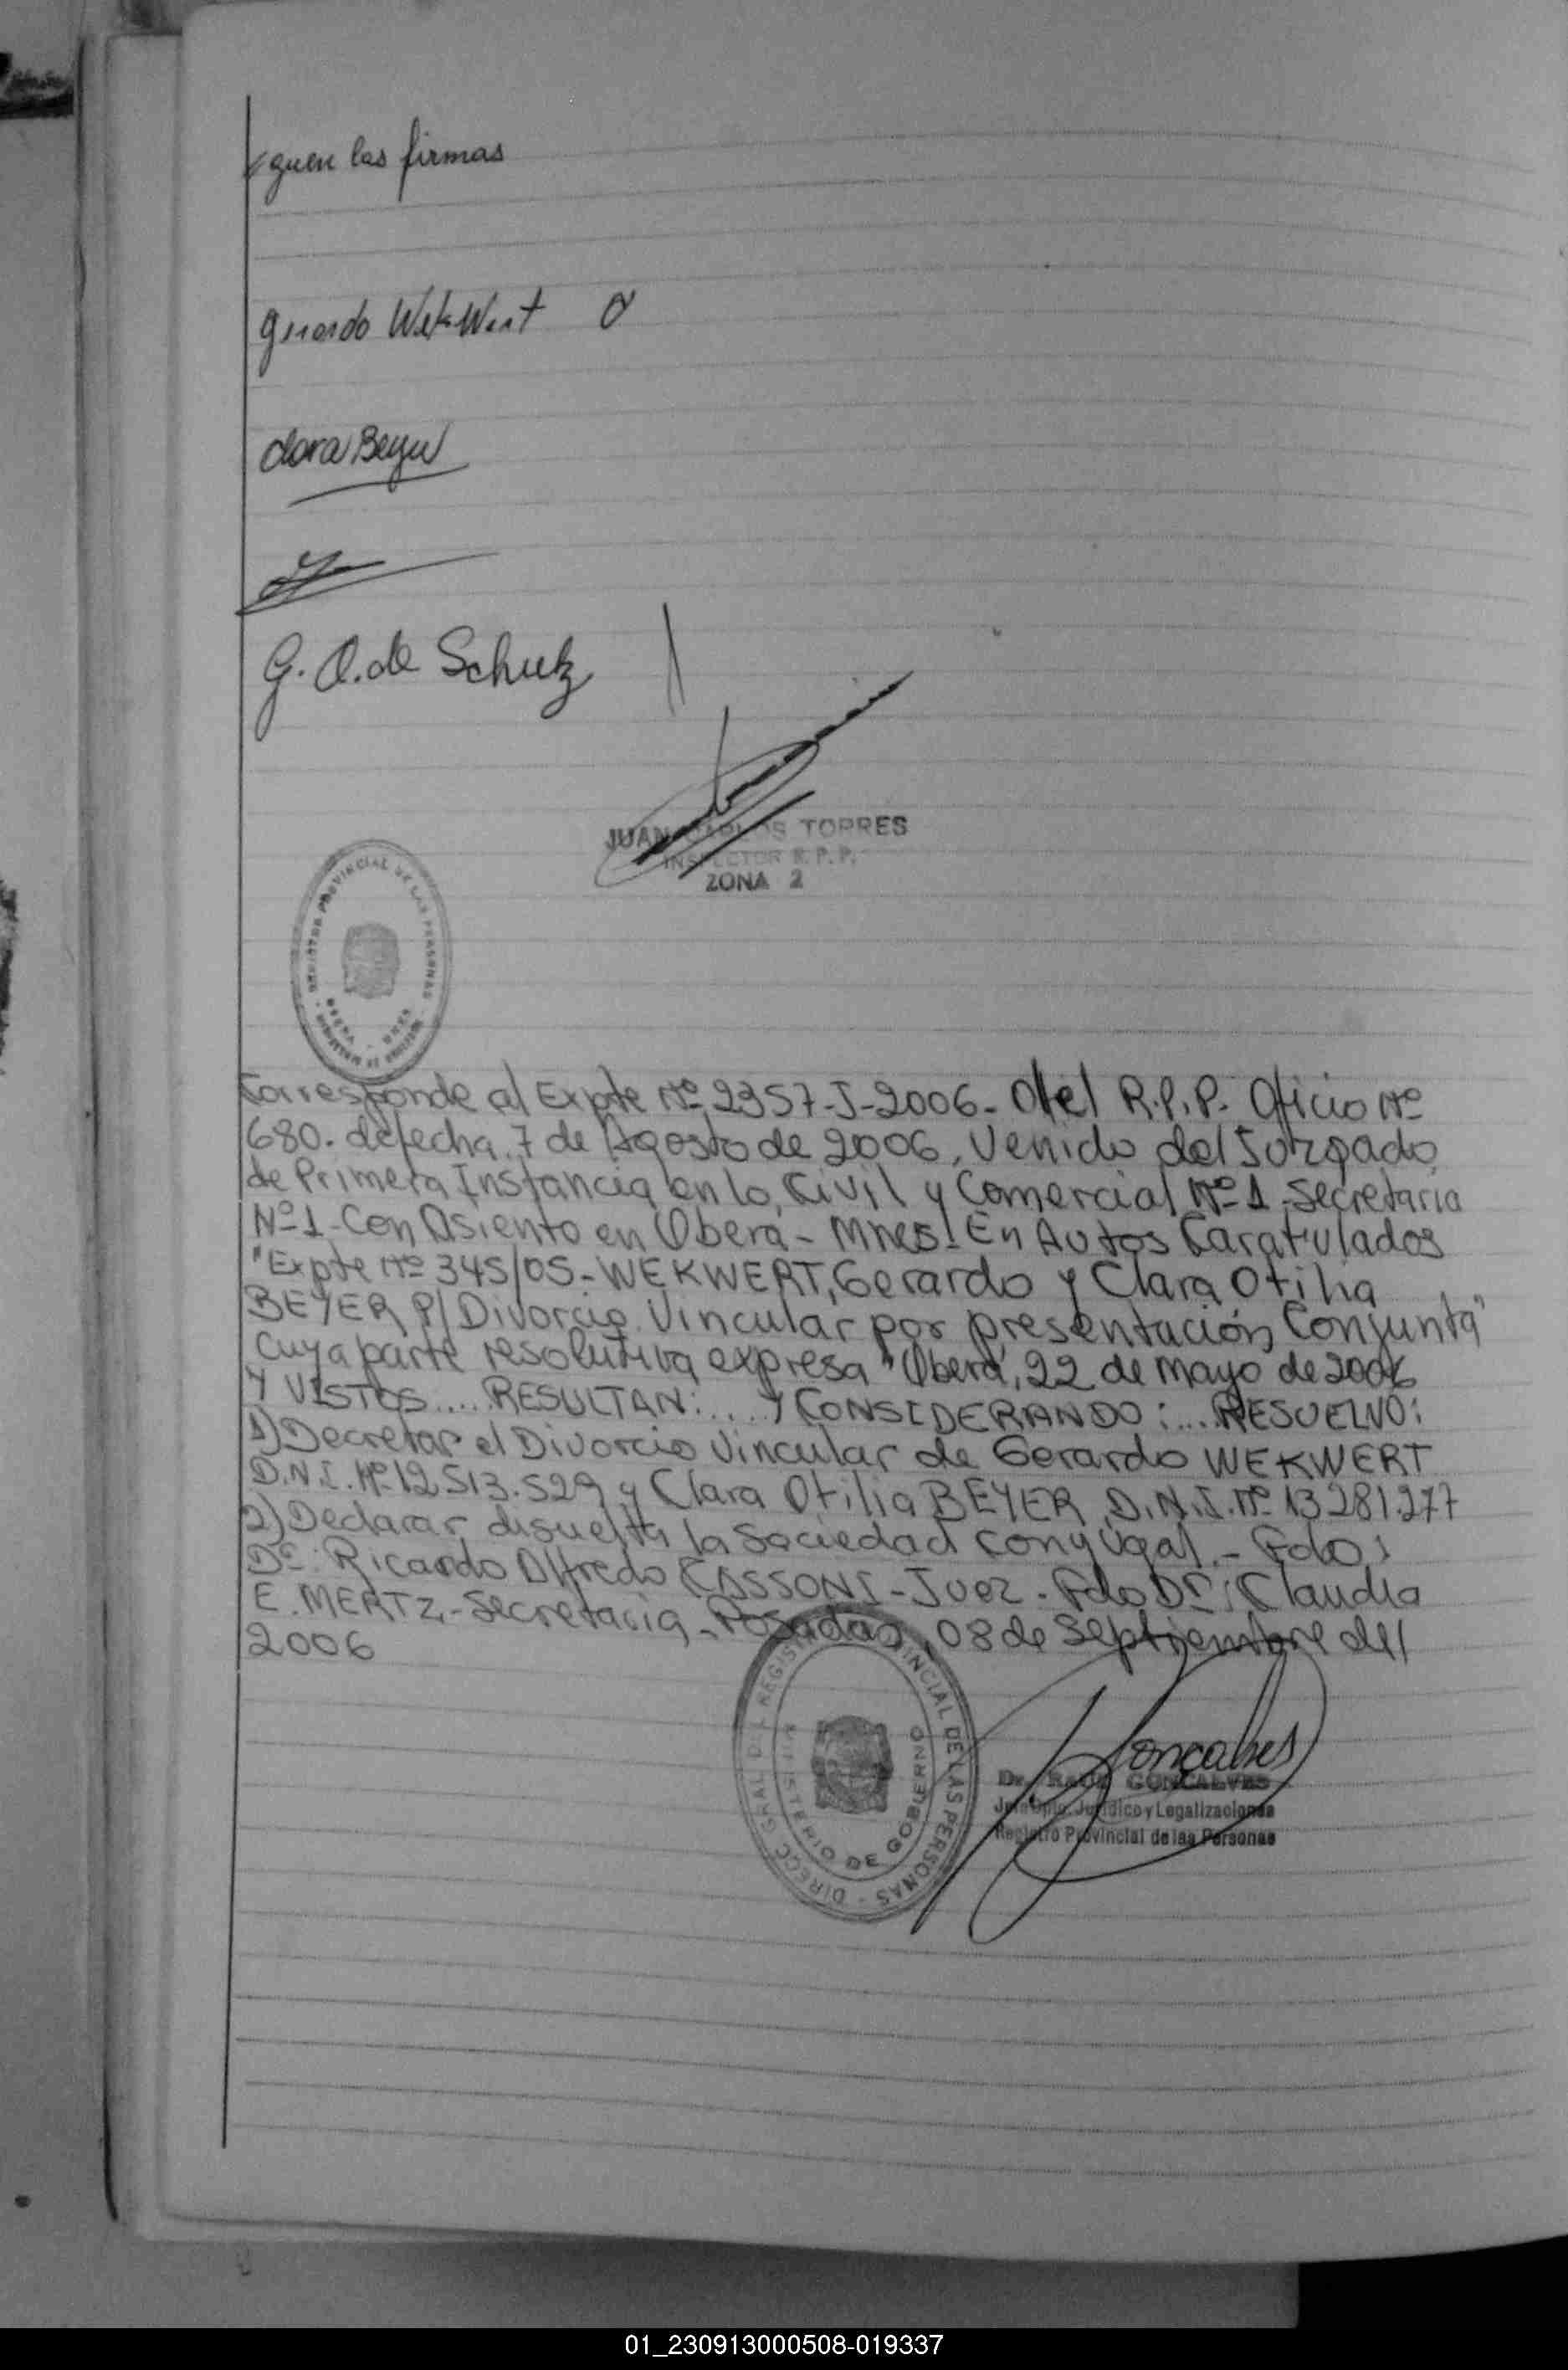 guen las firmas
Gerardo WekWert
Clara Beyer
G. O. de Schulz
JUAN CARLOS TORRES
INSPECTOR R.P.P.
ZONA 2
REGISTRO PROVINCIAL DE LAS PERSONAS
Corresponde al Expte Nº 2357-J-2006- del R.P.P. Oficio Nº
680. de fecha 7 de Agosto de 2006, Venido del Juzgado
de Primera Instancia en lo, Civil y Comercial Nº 1 Secretaria
Nº 1 - Con Asiento en Oberá - Mnes - En Autos Caratulados
"Expte Nº 345/05 - WEKWERT, Gerardo y Clara Otilia
BEYER P/ Divorcio Vincular por presentación Conjunta"
cuya parte resolutiva expresa "Oberá, 22 de Mayo de 2006
Y VISTOS..... RESULTAN:.... Y CONSIDERANDO:... RESUELVO:
1) Decretar el Divorcio Vincular de Gerardo WEKWERT
D.N.I. Nº 12.513.529 y Clara Otilia BEYER D.N.I. Nº 13281.277
2) Declarar disuelta la Sociedad conyugal.- Fdo:
Dr: Ricardo Alfredo CASSONI - Juez - Fdo Dra: Claudia
E. MERTZ - Secretaria - Posadas, 08 de Septiembre del
2006
DIRECC. GRAL DEL REGISTRO PROVINCIAL DE LAS PERSONAS
MINISTERIO DE GOBIERNO
Goncalves
Dr. RAUL GONCALVES
Jefe Dpto. Jurídico y Legalizaciones
Registro Provincial de las Personas
01_230913000508-019337